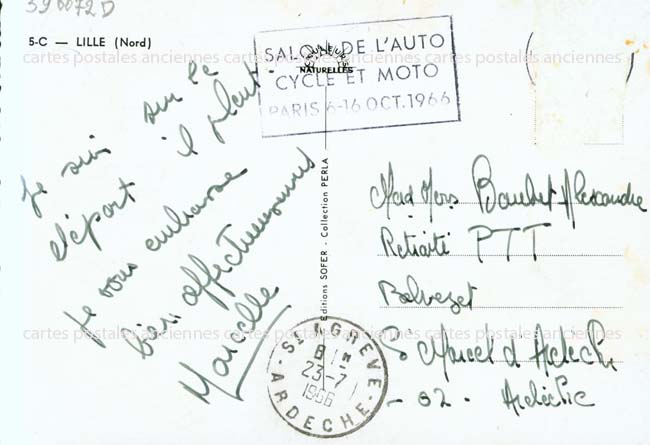 390072D
5-C — LILLE (Nord)
COULEURS
NATURELLES
SALON DE L'AUTO
CYCLE ET MOTO
PARIS 6-16 OCT. 1966
cartes postales anciennes cartes postales anciennes cartes postales anciennes cartes postales anciennes
Je suis sur le
départ il pleut
Je vous embrasse
bien affectueusement
Marcelle
Editions SOFER - Collection PERLA
Mad Mers Boulet Alexandre
Retraité PTT
Belvezet
Marcel d Ardèche
cartes postales anciennes cartes postales anciennes cartes postales anciennes cartes postales anciennes
- 02 - Ardèche
23-7
1966
ARDECHE